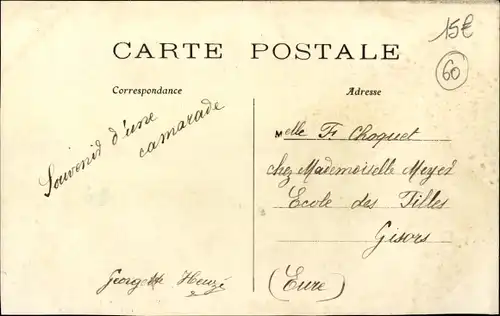 15€
60
CARTE POSTALE
Correspondance
Adresse
Souvenir d'une
camarade
Melle F. Choquet
chez Mademoiselle Meyer
Ecole des Filles
Gisors
(Eure)
Georgette Heuzé